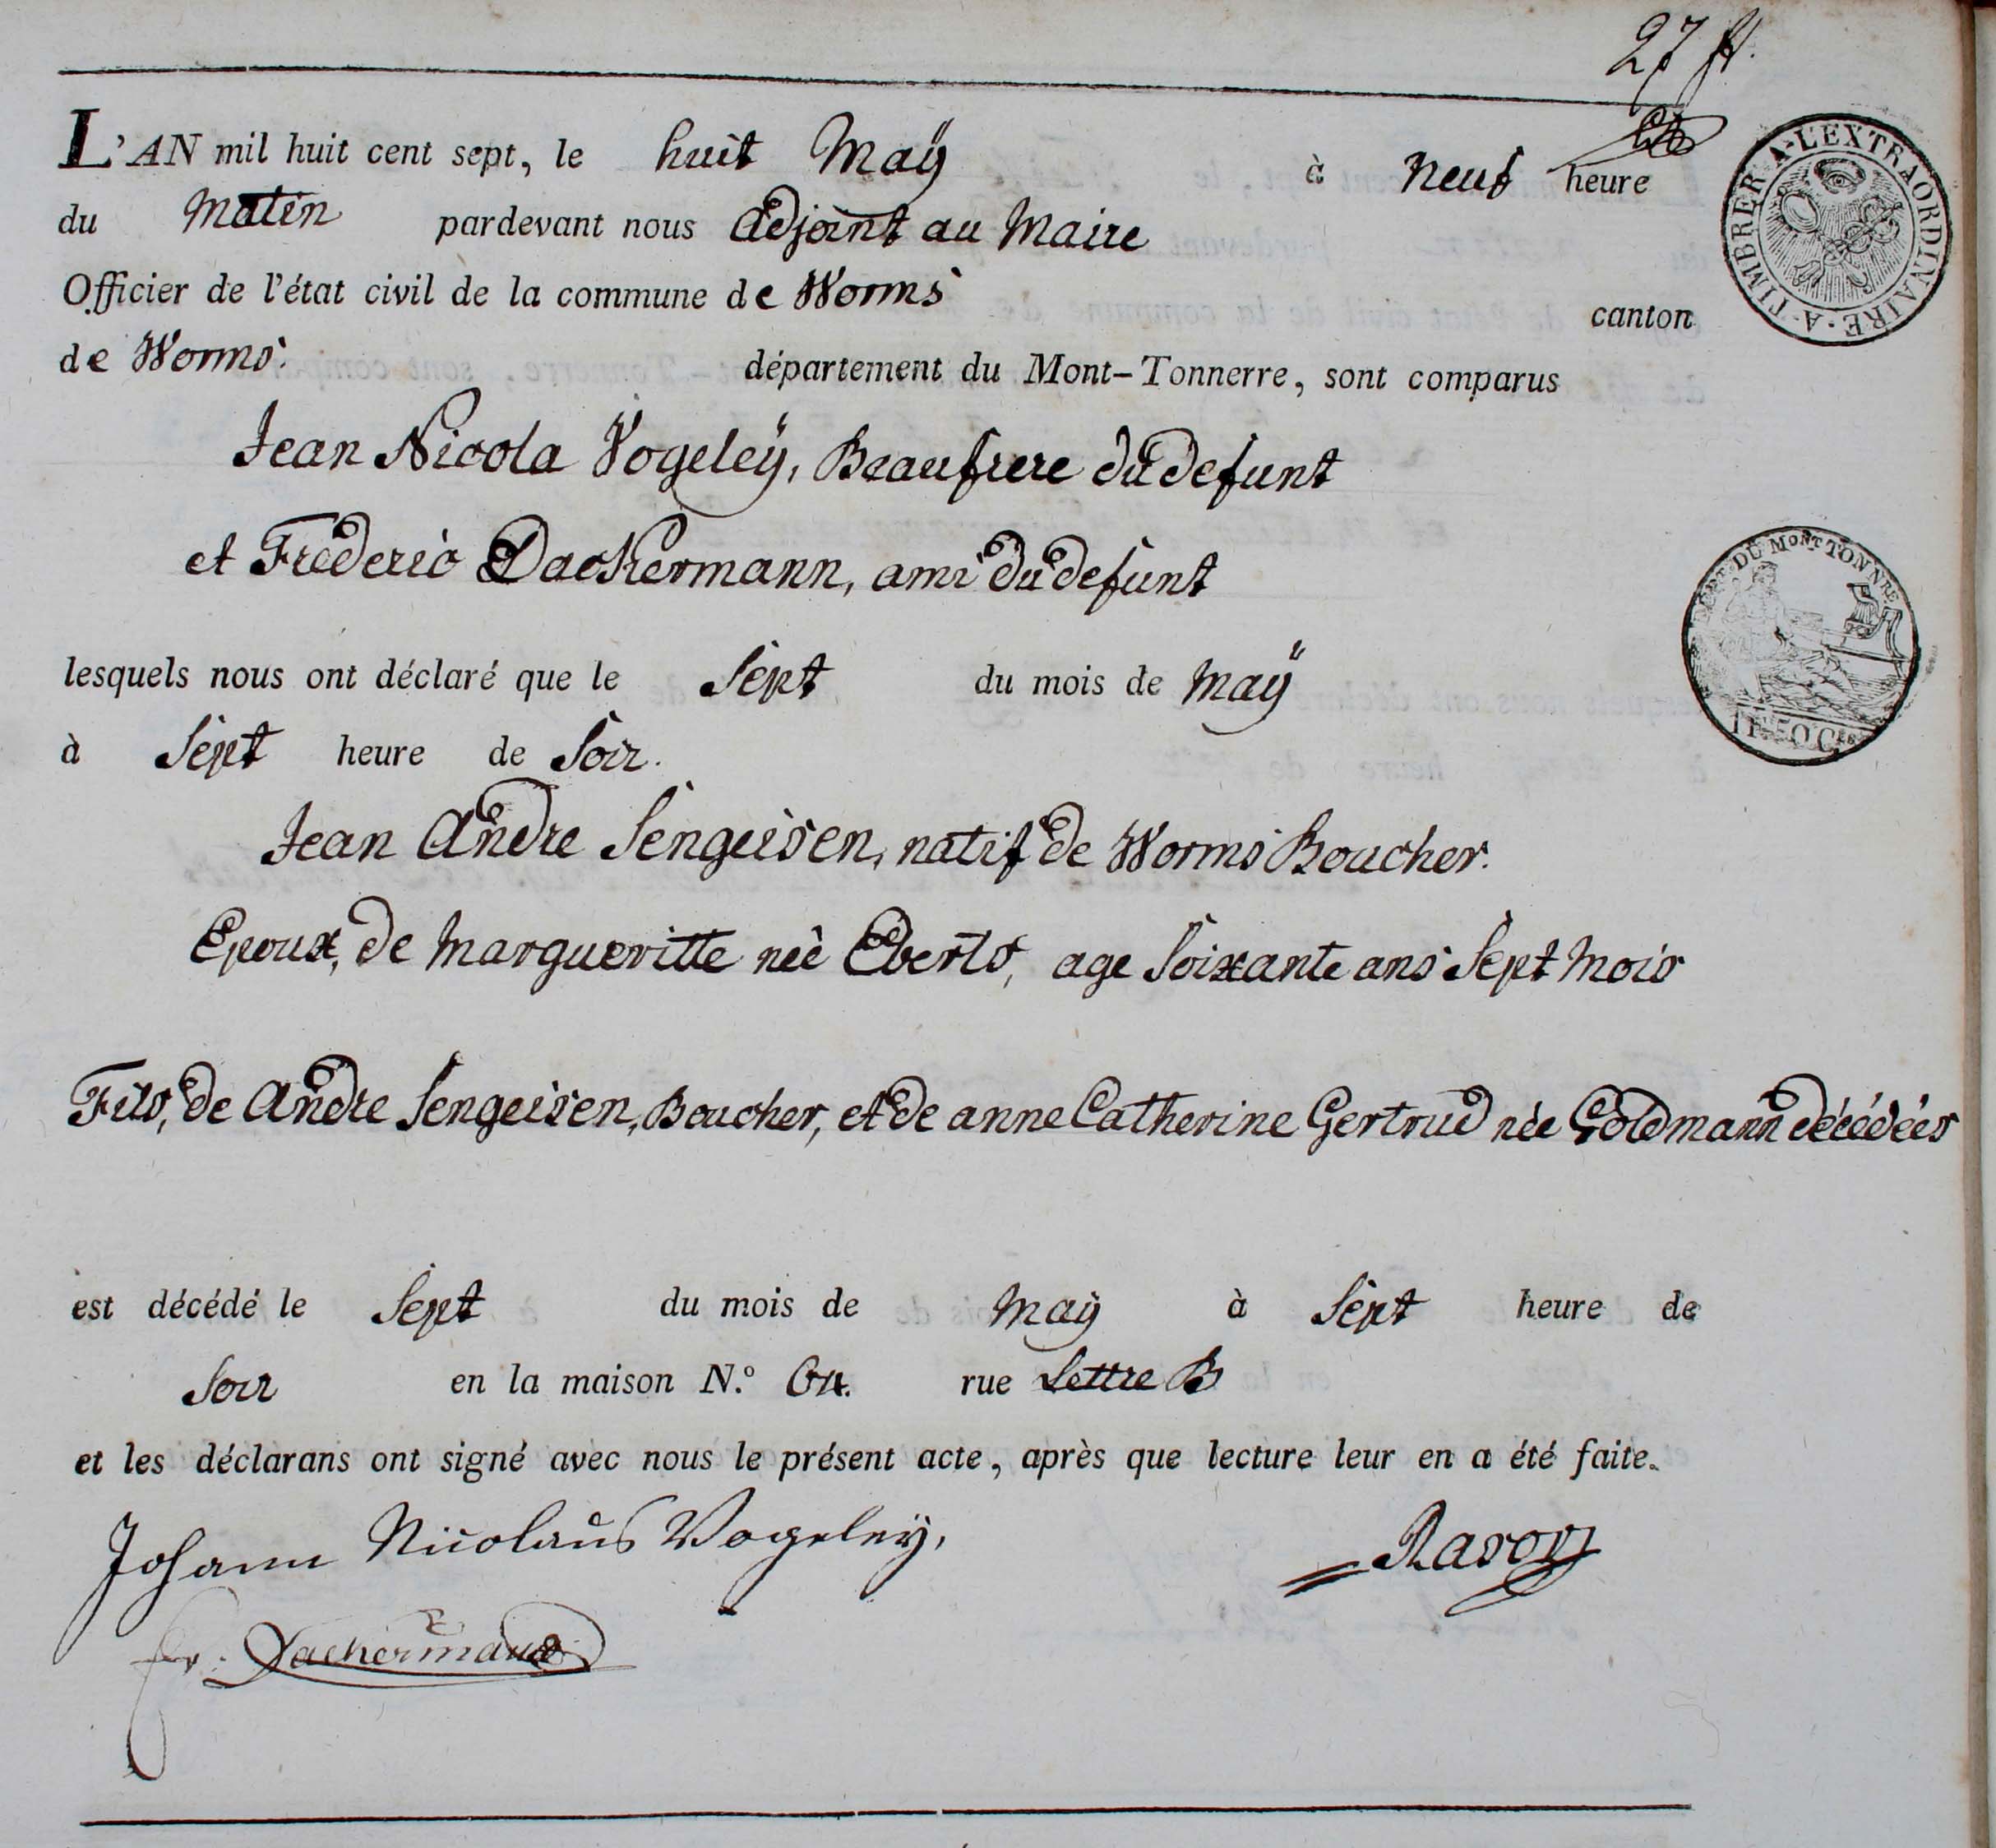 27 ff.
L'AN mil huit cent sept, le huit Maÿ à neuf heure
du Matin pardevant nous Adjoint au Maire
Officier de l'état civil de la commune de Worms canton
de Worms. département du Mont-Tonnerre, sont comparus
Jean Nicola Vogeleÿ, Beaufrere du defunt
et Frederic Dackermann, ami du defunt
lesquels nous ont déclaré que le Sept du mois de Maÿ
à Sept heure de Soir.
Jean Andre Sengeisen, natif de Worms Boucher.
Epoux, de Margueritte née Eberts, age Soixante ans Sept Mois
Fils, de Andre Sengeisen, Boucher, et de anne Catherine Gertrud née Goldmann décédées
est décédé le Sept du mois de Maÿ à Sept heure de
Soir en la maison N.º 64. rue Lettre B
et les déclarans ont signé avec nous le présent acte, après que lecture leur en a été faite.
Johann Nicolaus Vogeleÿ,
Rasor
fr: Dackermann
A TIMBRER A L'EXTRAORDINAIRE
DEPT DU MONT TONNRE
1F. 50 Ces